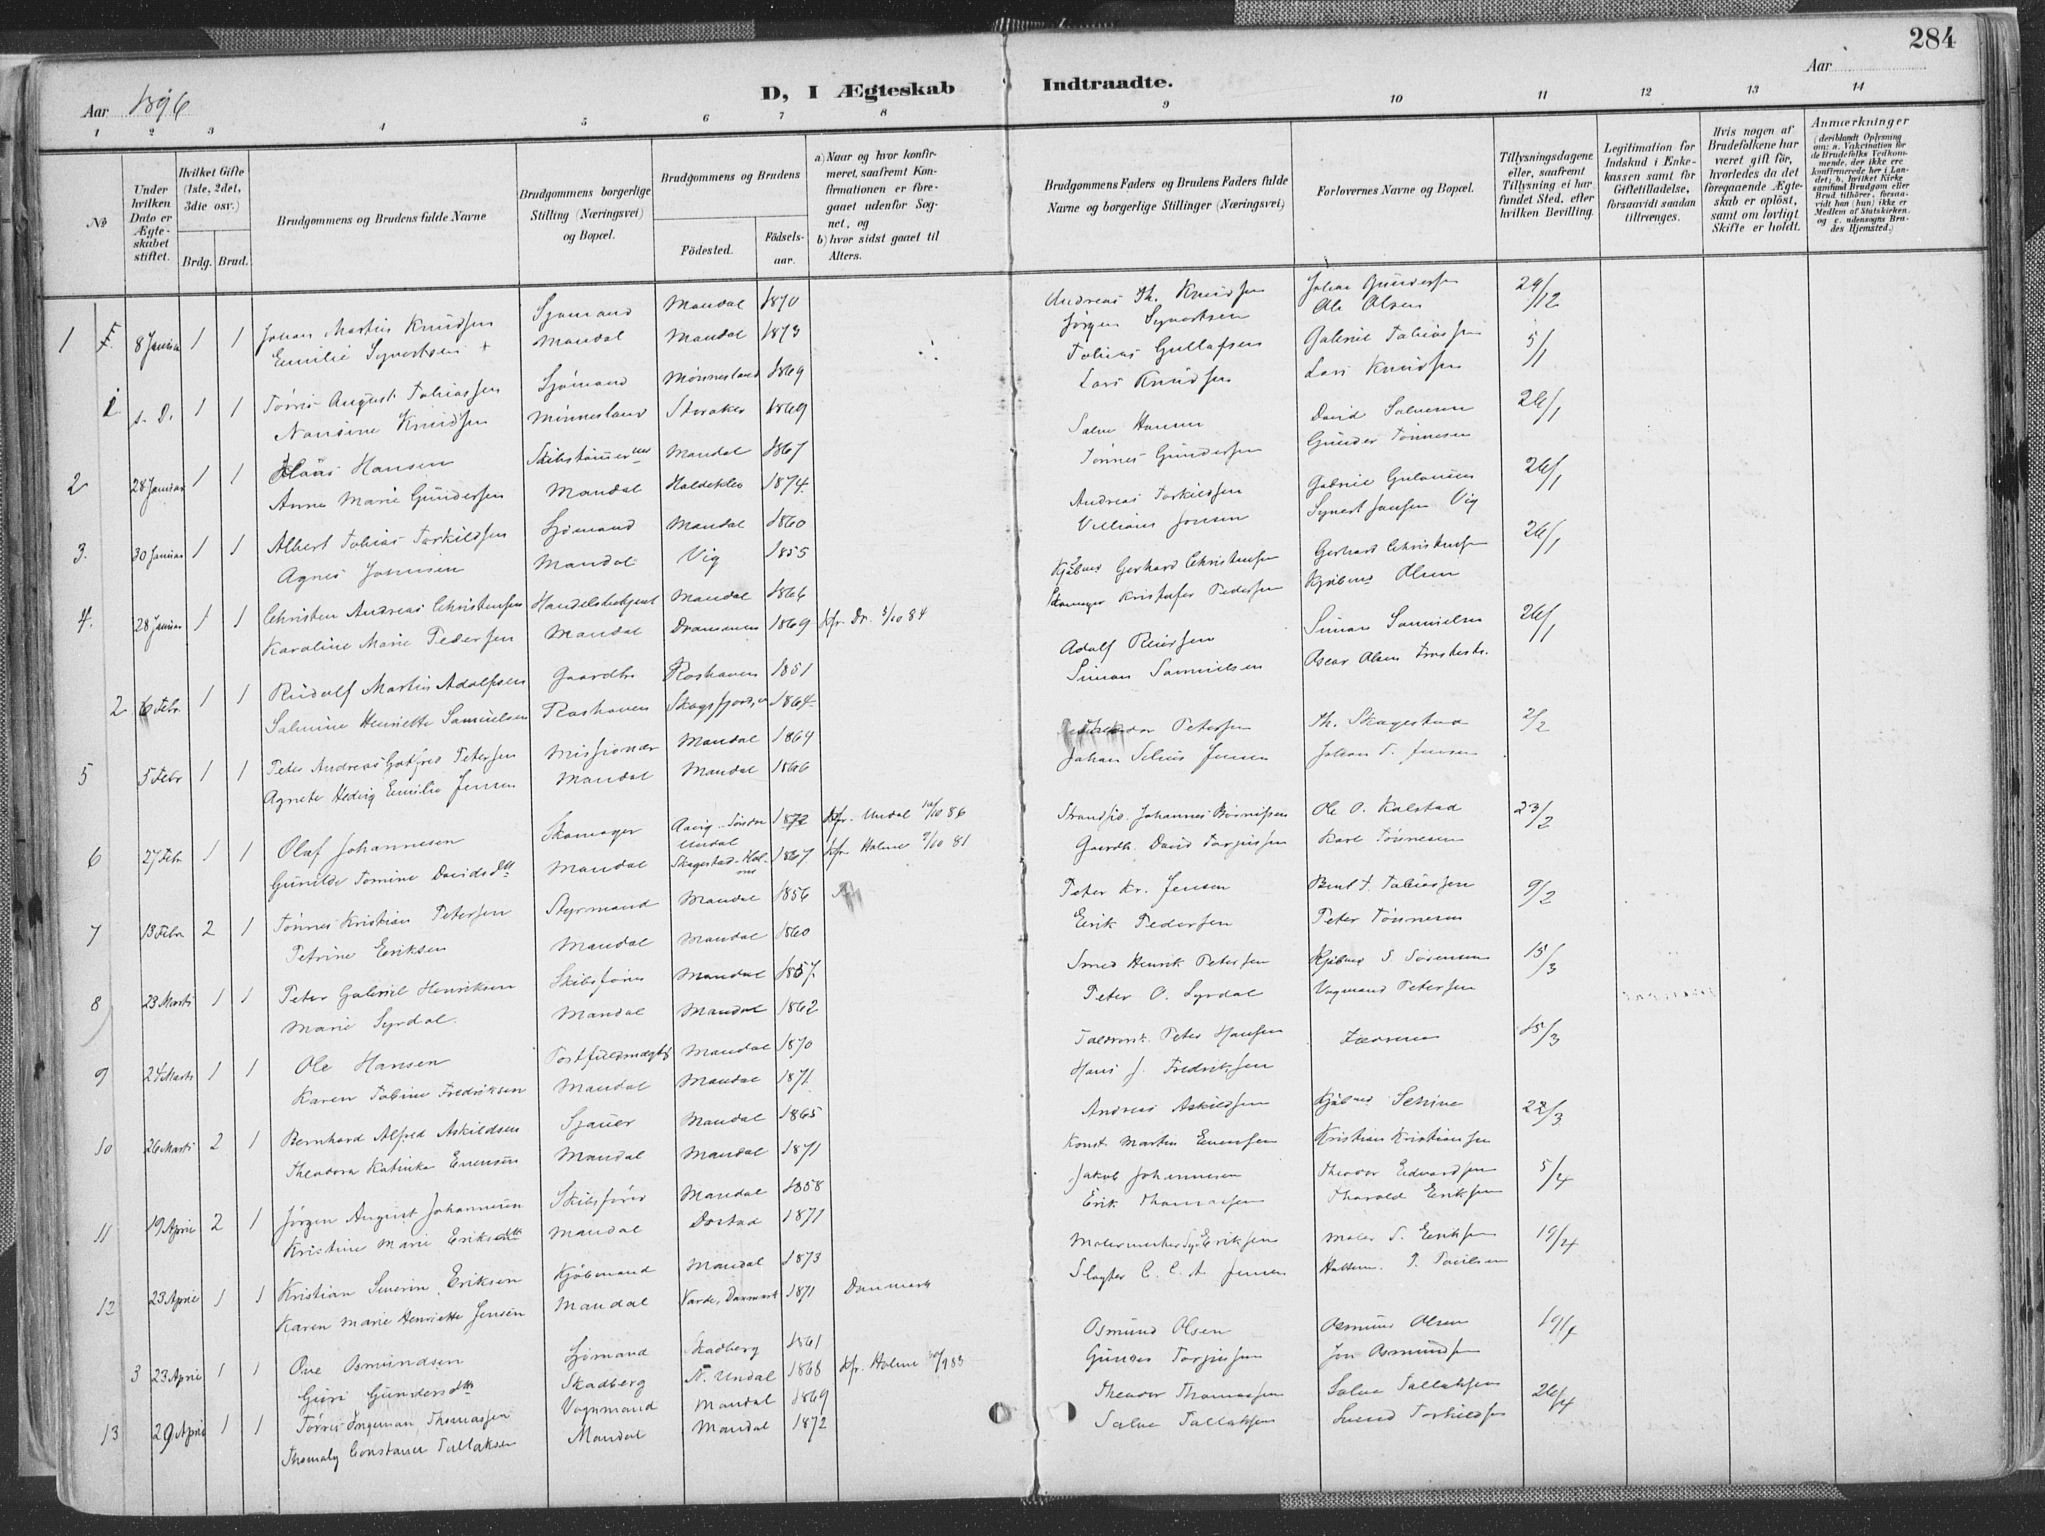 284
Aar 1896
D, I Ægteskab Indtraadte.
Aar
1 2 3 4 5 6 7 8 9 10 11 12 13 14
No
Under hvilken Dato er Ægteskabet stiftet.
Hvilket Gifte (1ste, 2det, 3die osv.)
Brdg. Brud.
Brudgommens og Brudens fulde Navne
Brudgommens borgerlige Stilling (Næringsvei) og Bopæl.
Brudgommens og Brudens
Födested.
Födselsaar.
a) Naar og hvor konfirmeret, saafremt Konfirmationen er foregaaet udenfor Sognet, og
b) hvor sidst gaaet til Alters.
Brudgommens Faders og Brudens Faders fulde Navne og borgerlige Stillinger (Næringsvei)
Forlovernes Navne og Bopæl.
Tillysningsdagene eller, saafremt Tillysning ei har fundet Sted, efter hvilken Bevilling.
Legitimation for Indskud i Enkekassen samt for Giftetilladelse, forsaavidt saadan tiltrænges.
Hvis nogen af Brudefolkene har været gift för, hvorledes da det foregaaende Ægteskab er oplöst, samt om lovligt Skifte er holdt.
Anmærkninger (deriblandt Oplysning om: a. Vakcination for de Brudefolks Vedkommende, der ikke ere konfirmerede her i Landet; b. hvilket Kirkesamfund Brudgom eller Brud tilhörer, forsaavidt han (hun) ikke er Medlem af Statskirken, og c. udensogns Brudes Hjemsted.)
1 8 Januar 1 1 Johan Martin Knudsen Sjømand Mandal 1870 Andreas Th. Knudsen Johan Gundersen 29/12
Emilie Syvertsen + Mandal Mandal 1873 Jörgen Syvertsen Ole Olsen
1 s. D. 1 1 Tørris August Tobiassen Sjømand Mønnesland 1869 Tobias Gullafsen Gabriel Tobiassen 5/1
Nansine Knudsen Mønnesland Storaker 1869 Lars Knudsen Lars Knudsen
2 28 Januar 1 1 Hansen Mandal 1867 Salve Hansen David Salvesen 26/1
Anne Marie Gundersen Mandal Holdeklev 1874 Tønnes Gundersen Gunder Tønnesen
3. 30 Januar 1 1 Albert Tobias Torkildsen Sjømand Mandal 1860 Andreas Torkildsen Gabriel 26/1
Agnes Jonsen Mandal Vig 1855 Villiam Jonsen Syvert Jansen Vig
4. 28 Januar 1 1 Christen Andreas Christensen Handelsbetjent Mandal 1866 Kjøbmd Gerhard Christensen Gerhard Christensen 26/1
Karoline Marie Pedersen Mandal Drammen 1869 kfr. Dr. 5/10 84 Skomager Kristofer Pedersen Kjøbmd Olsen
2 6 Febr. 1 1 Rudolf Martin Adolfsen Gaardbr Roshaven 1851 Adolf Reiersen Simon Samuelsen 26/1
Salmine Henriette Samuelsen Roshaven 1864 Simon Samuelsen Oscar Olsen
5 5 Febr 1 1 Peter Andreas Gotfred Petersen Missionær Mandal 1864 Petersen Th. Skagestad 2/2
Agnete Hedvig Emilie Jensen Mandal Mandal 1866 Johan Jensen Johan T. Jensen
6 27 Febr 1 1 Olaf Johannesen Skomager Undal 1872 kfr. Undal 10/10 86 Johannes Ole O. Kalstad 23/2
Gunilde Tomine Davidsdtt Mandal Skagestad - Holme 1867 kfr Holme 9/10 81 Gaardb. David Torjussen Karl Tønnesen
7 13 Febr 2 1 Tønnes Kristian Petersen Styrmand Mandal 1856 Peter Kr. Jensen Bent T. Tobiassen 9/2
Petrine Eriksen Mandal Mandal 1860 Erik Pedersen Peter Tønnesen
8 23 Marts 1 1 Peter Gabriel Henriksen Skibsfører Mandal 1857 Smed Henrik Petersen Kjøbmd S Sørensen 15/3
Marie Syrdal. Mandal Mandal 1862 Peter O. Syrdal Vognmand Petersen
9 24 Marts 1 1 Ole Hansen Postfuldmægtig Mandal 1870 Peter Hansen 15/3
Karen Tobine Fredriksen Mandal Mandal 1871 Hans J. Fredriksen
10 26 Marts 2 1 Bernhard Alfred Askildsen Sjauer Mandal 1865 Andreas Askildsen Kjøbmd 22/3
Theodora Katinka Evensen Mandal Mandal 1871 Konst Martin Evensen Kristian Kristiansen
11 19 April 2 1 Jørgen August Johannesen Skibsfører Mandal 1858 Jakob Johannesen Theodor Edvardsen 5/4
Kristine Marie Eriksdtt Mandal Dostad 1871 Erik Thomassen Tharald Eriksen
12 23 April 1 1 Kristian Severin Eriksen Kjøbmand Mandal 1873 Malermester Eriksen Maler S. Eriksen 19/4
Karen Marie Henriette Jensen Mandal Varde, Danmark 1871 Danmark Slagter C. C. A. Jensen T. Poulsen
3 23 April 1 1 Ove Osmundsen Sjømand Skadberg 1861 Osmund Olsen Osmund Olsen 19/4
Guri Gundersdtt Skadberg N. Undal 1868 kfr. Holme Gunder Torjussen Jon Osmundsen
13 29 April 1 1 Tørris Ingeman Thomassen Vognmand Mandal 1869 Theodor Thomassen Salve Tallaksen 26/4
Thomaly Constance Tallaksen Mandal Mandal 1872 Salve Tallaksen Svend Torkildsen